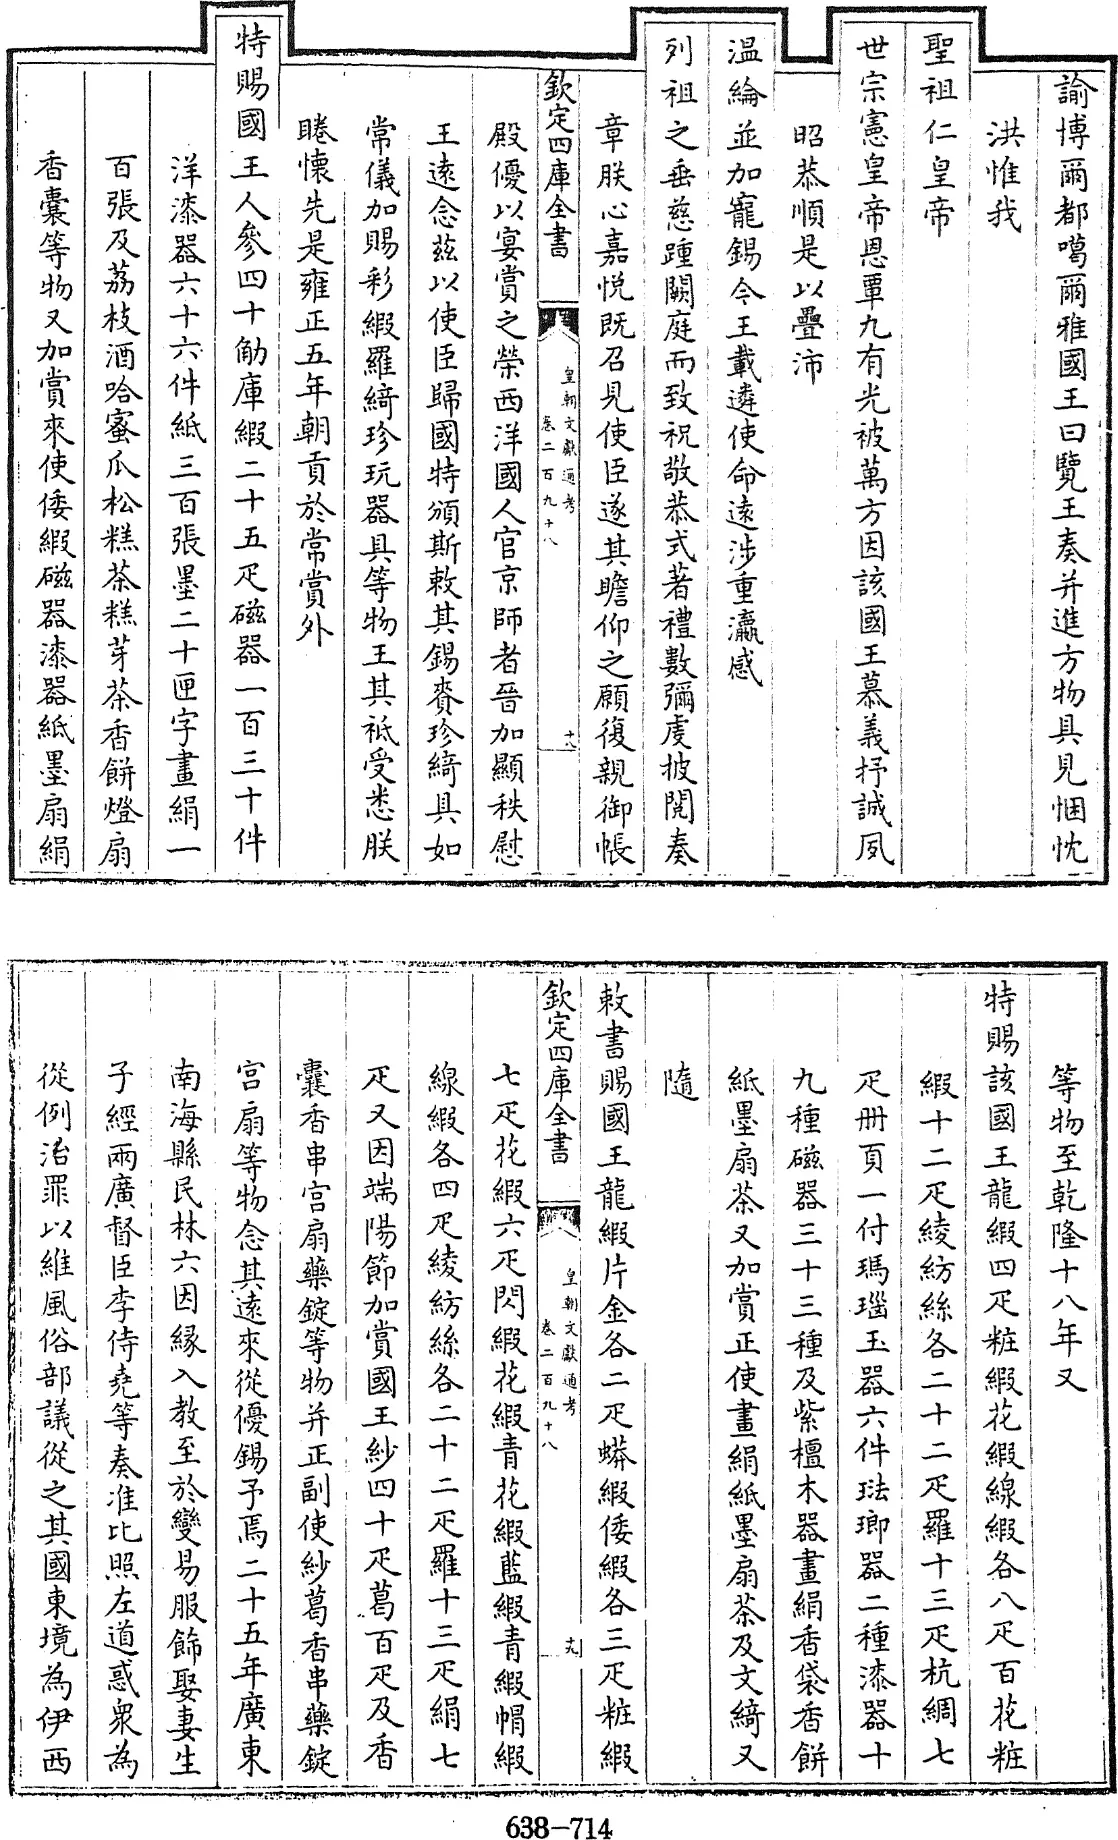 諭博爾都噶爾雅國王曰覽王奏并進方物具見悃忱
洪惟我
聖祖仁皇帝
世宗憲皇帝恩覃九有光被萬方因該國王慕義抒誠夙
昭恭順是以疊沛
溫綸並加寵錫今王載遴使命遠涉重瀛感
列祖之垂慈踵闕庭而致祝敬恭式著禮數彌虔披閱奏
章朕心嘉悅既召見使臣遂其瞻仰之願復親御帳
欽定四庫全書
皇朝文獻通考
卷二百九十八
十八
殿優以宴賞之榮西洋國人官京師者晉加顯秩慰
王遠念茲以使臣歸國特頒斯敕其錫賚珍綺具如
常儀加賜彩緞羅綺珍玩器具等物王其祗受悉朕
睠懷先是雍正五年朝貢於常賞外
特賜國王人參四十觔庫緞二十五疋磁器一百三十件
洋漆器六十六件紙三百張墨二十匣字畫絹一
百張及荔枝酒哈蜜瓜松糕茶糕芽茶香餅燈扇
香囊等物又加賞來使倭緞磁器漆器紙墨扇絹
等物至乾隆十八年又
特賜該國王龍緞四疋粧緞花緞線緞各八疋百花粧
緞十二疋綾紡絲各二十二疋羅十三疋杭綢七
疋冊頁一付瑪瑙玉器六件琺瑯器二種漆器十
九種磁器三十三種及紫檀木器畫絹香袋香餅
紙墨扇茶又加賞正使畫絹紙墨扇茶及文綺又
隨
敕書賜國王龍緞片金各二疋蟒緞倭緞各三疋粧緞
欽定四庫全書
皇朝文獻通考
卷二百九十八
十九
七疋花緞六疋閃緞花緞青花緞藍緞青緞帽緞
線緞各四疋綾紡絲各二十二疋羅十三疋絹七
疋又因端陽節加賞國王紗四十疋葛百疋及香
囊香串宮扇藥錠等物并正副使紗葛香串藥錠
宮扇等物念其遠來從優錫予焉二十五年廣東
南海縣民林六因緣入教至於變易服飾娶妻生
子經兩廣督臣李侍堯等奏准比照左道惑眾為
從例治罪以維風俗部議從之其國東境為伊西
638-714